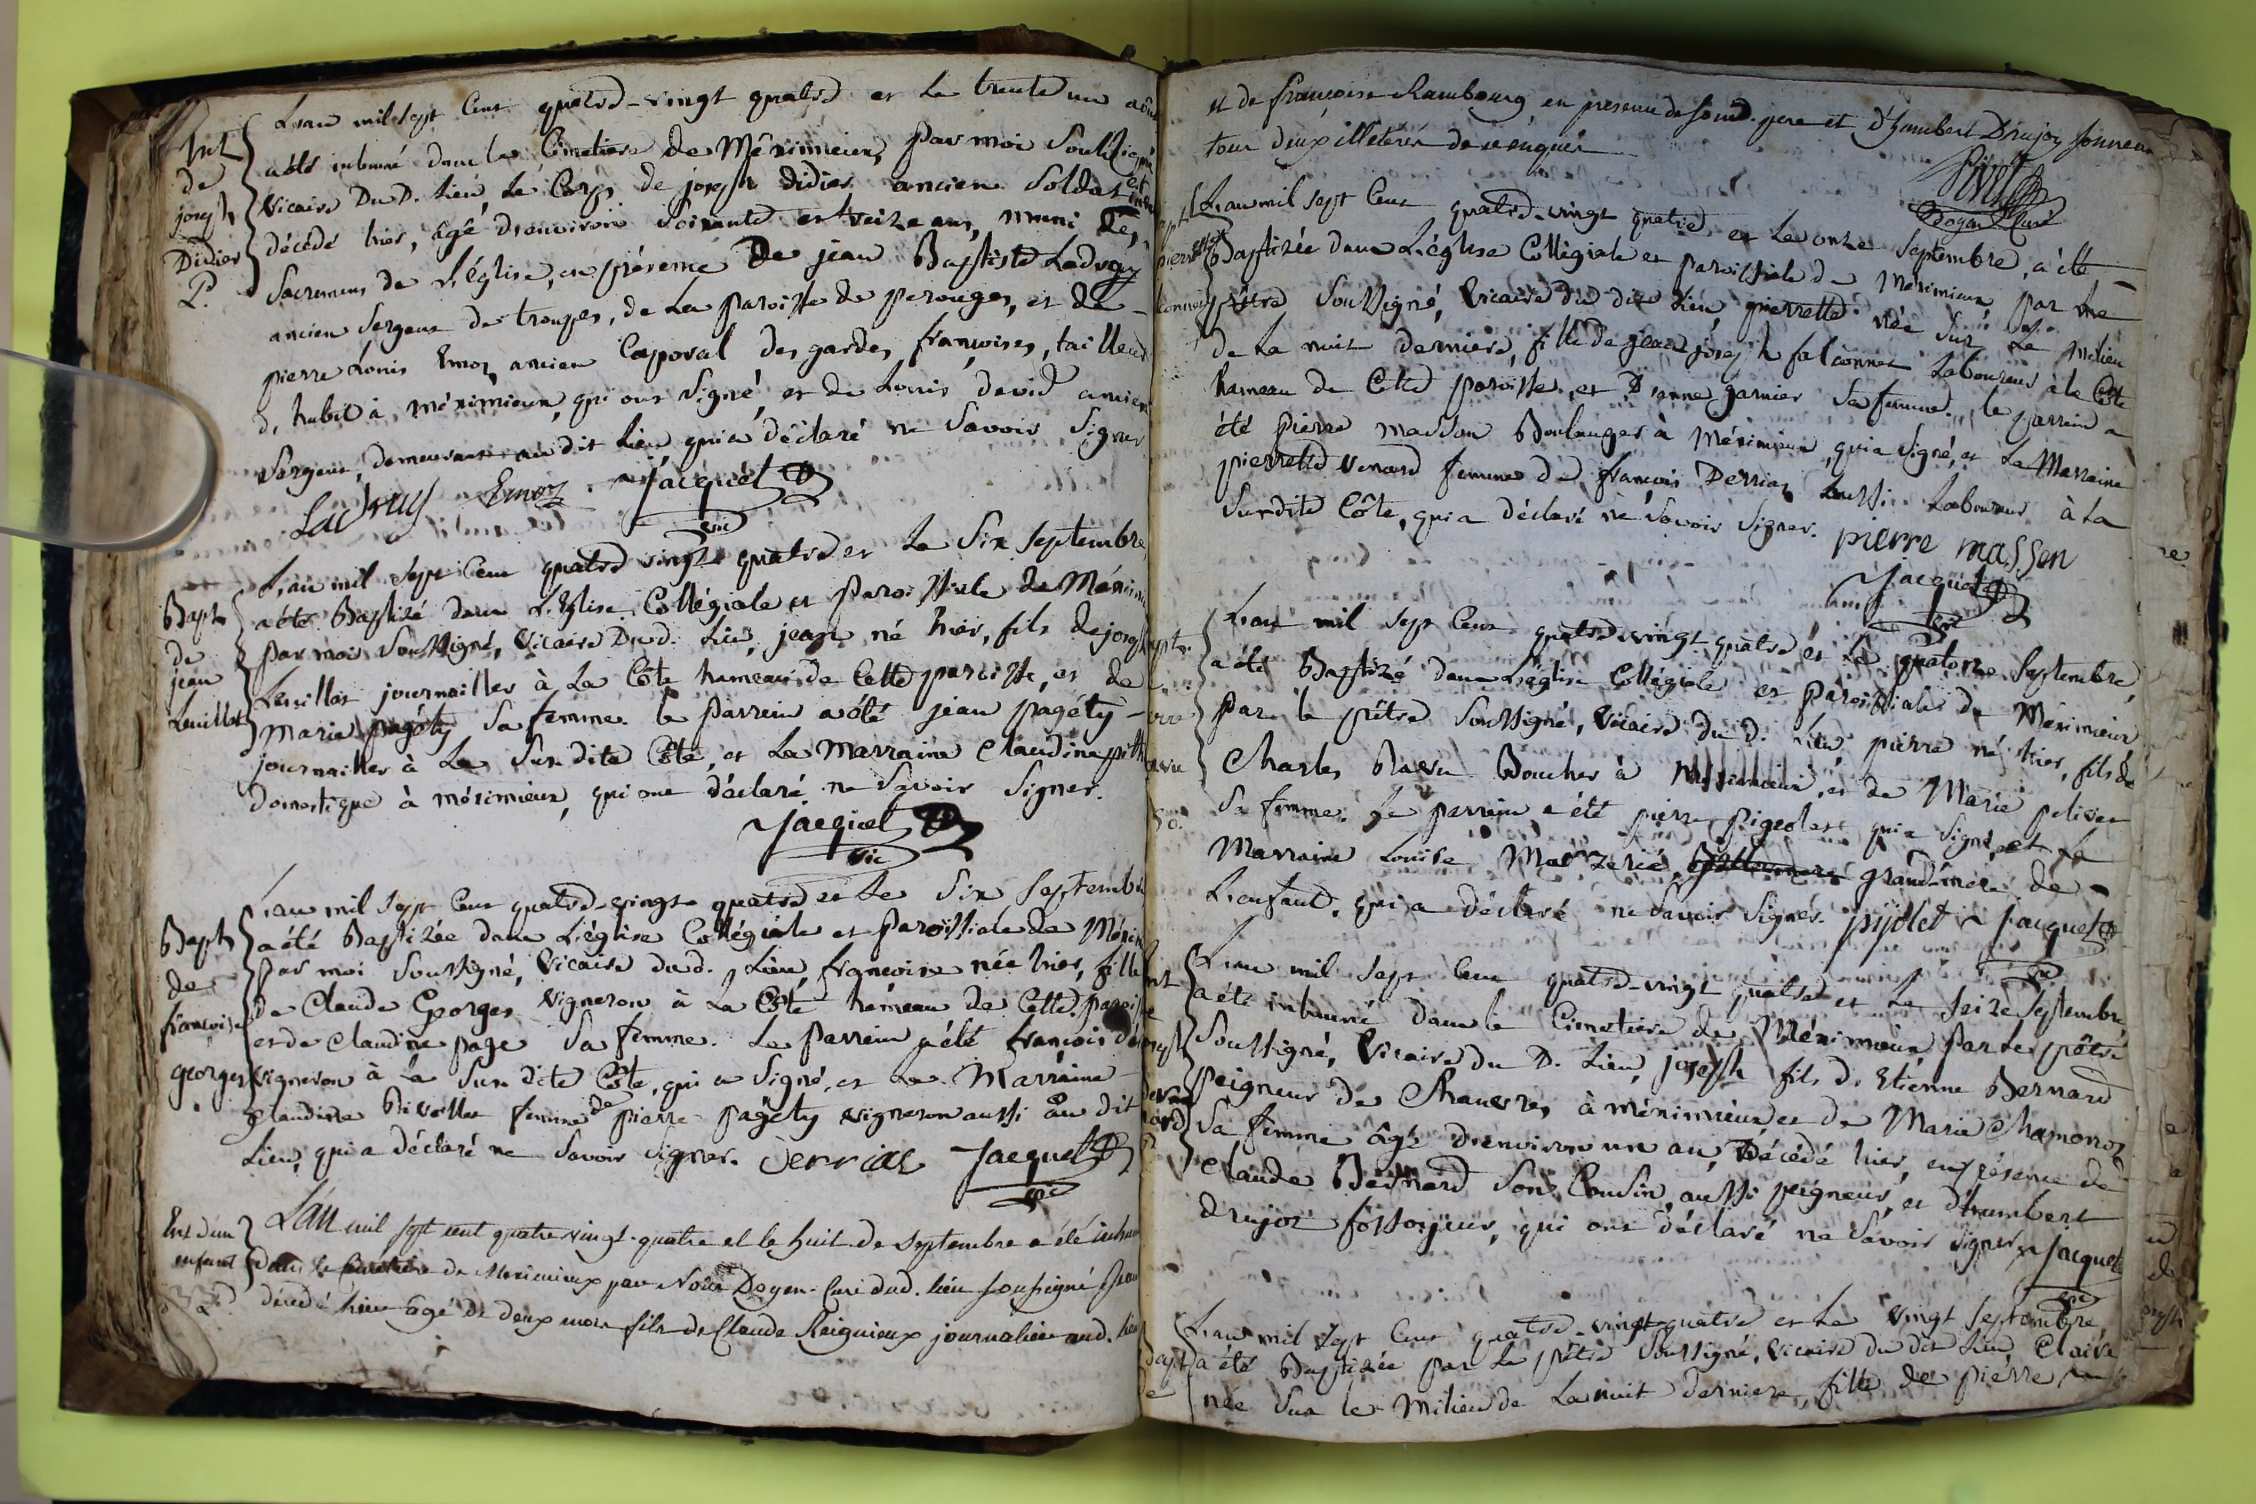 Int
de
joseph
Didier
P.
L'an mil sept Cent quatre-vingt quatre et Le trente un aôut
a été inhumé dans le Cimetiere de Méximieux, par moi Soussigné
Vicaire Du D. Lieu, Le Corps de joseph didier ancien Soldat
décédé hier, âgé d'environ Soixante et treize ans, muni des
Sacremens de L'église, en présence De jean Baptiste Ladrey
ancien Sergent de troupes, de La paroisse de perouges, et de
pierre Louis Emoz ancien Caporal des gardes françoises, tailleur
d, habit à méximieux, qui ont Signé, et de Louis david ancien
Sergent, demeurant au dit Lieu, qui a déclaré ne Savoir Signer
Emoz Jacquet
vic
Bapt
de
jean
Levillat
L'an mil Sept Cent quatre vingt quatre et Le Six Septembre,
a été Baptizé dans L'Eglise Collégiale et paroissiale de Méximieux
par moi Soussigné, Vicaire Du d. Lieu, jean né hier, fils de joseph
Levillat journallier à La Côte hameau de Cette paroisse, et de
Marie pagéty Sa femme. le parrein a été jean pagéty
journallier à La Susdite Côte, et La Marraine Claudine
domestique à méximieux, qui ont déclaré ne Savoir Signer.
Jacquet
vic
Bapt
de
françoise
georges
L'an mil Sept Cent quatre-vingt quatre et Le Six Septembre
a été Baptizée dans L'église Collégiale et paroissiale de Méximieux
par moi Soussigné, Vicaire du d. Lieu, françoise née hier, fille
de Claude Georges Vigneron à La Côte hameau de Cette paroisse
et de Claudine page Sa femme. Le parrein a été françois
vigneron à La Susdite Côte, qui a Signé, et La Marraine
Claudine femme de pierre pagéty vigneron aussi au dit
Lieu, qui a déclaré ne Savoir Signer. derriaz Jacquet
vic
Ent d'un
enfant
L'an mil sept cent quatre vingt-quatre et le huit de septembre a été inhumé
dans le Cimetiere de Meximieux par Nous Doyen-Curé dud. lieu soussigné
décédé hier âgé de deux mois fils de Claude Reignieux journalier aud. lieu
et de françoise Rambourg en presence de son d. pere et d'humbert Drujoz sonneur
tous deux illeterés de ce enquis
Doyen Curé
L'an mil sept Cent quatre-vingt quatre, et Le onze Septembre, a été
Baptizée dans L'église Collégiale et paroissiale de Méximieux, par Le
prêtre Soussigné, Vicaire du dit Lieu, pierrette née Sur Le Milieu
de La nuit derniere, fille de jean joseph falconnet Laboureur à la Côte
hameau de Cette paroisse, et D'anne garnier Sa femme. le parrein a
été pierre masson Boulanger à Méximieux, qui a Signé, et La Marraine
pierrette Venard femme de françois Derriaz aussi Laboureur à La
Susdite Côte, qui a déclaré ne Savoir Signer. pierre massen
Jacquet
vic
L'an mil sept Cent quatre-vingt quatre et Le quatorze Septembre,
a été Baptizé dans L'église Collégiale et paroissiale de Méximieux
par le prêtre Soussigné, Vicaire du d. Lieu, pierre né hier, fils de
Charles Ravu Boucher à Méximieux, et de Marie
Sa femme. Le parrein a été pierre Pigeolet qui a Signé, et La
Marraine Louise grand-mere de
L'enfant, qui a déclaré ne Savoir Signer. pijolet Jacquet
vic
L'an mil sept Cent quatre-vingt quatre et Le Seize Septembre
a été inhumé dans le Cimetiere de Méximieux par Le prêtre
Soussigné, Vicaire du D. Lieu, joseph fils d, Etienne Bernard
peigneur de Chanvre, à méximieux et de Marie Chamonoz
Sa femme âgé d'environ un an, Décédé hier, en présence de
Claude Bernard Son Cousin, aussi peigneur, et d'humbert
drujoz fossoyeur, qui ont déclaré ne Savoir Signer. Jacquet
vic
L'an mil Sept Cent quatre-vingt quatre et Le Vingt Septembre
a été Baptizée par Le prêtre Soussigné, Vicaire du dit Lieu, Claire
née Sur Le Milieu de La nuit derniere, fille de pierre